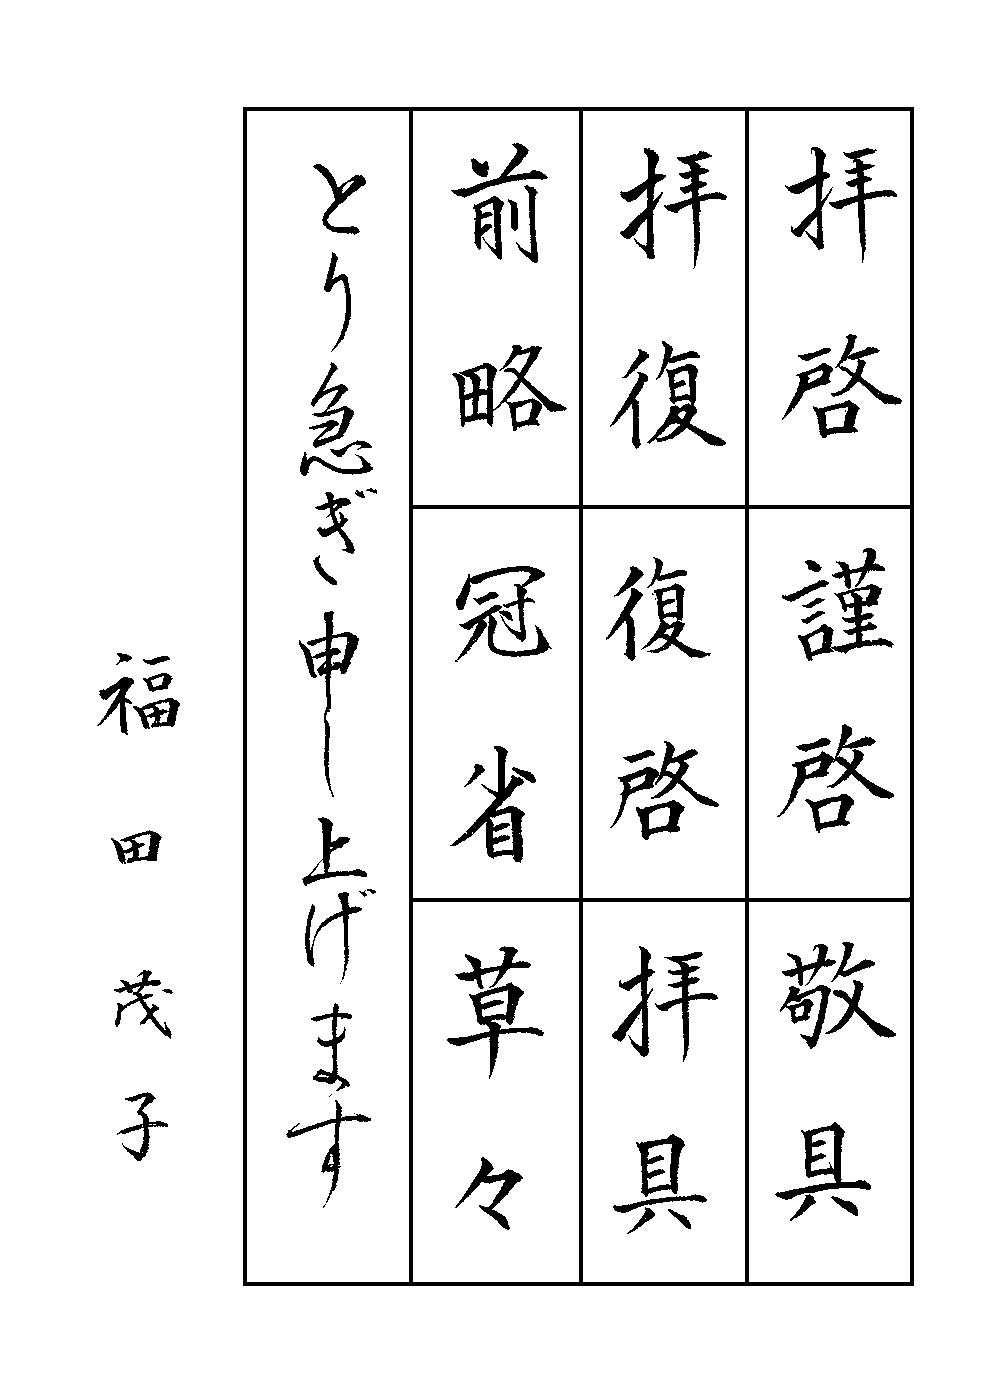 拝啓
謹啓
敬具
拝復
復啓
拝具
前略
冠省
草々
とり急ぎ申し上げます
福田茂子